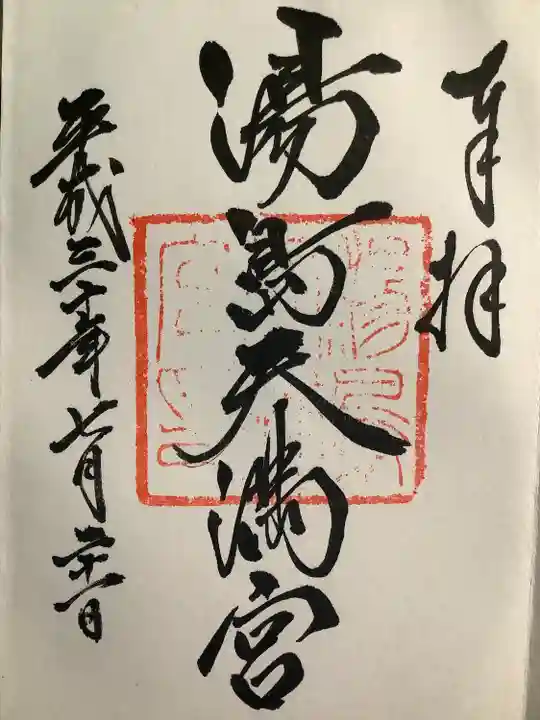 奉拝
湯島天満宮
平成三十年七月二十一日